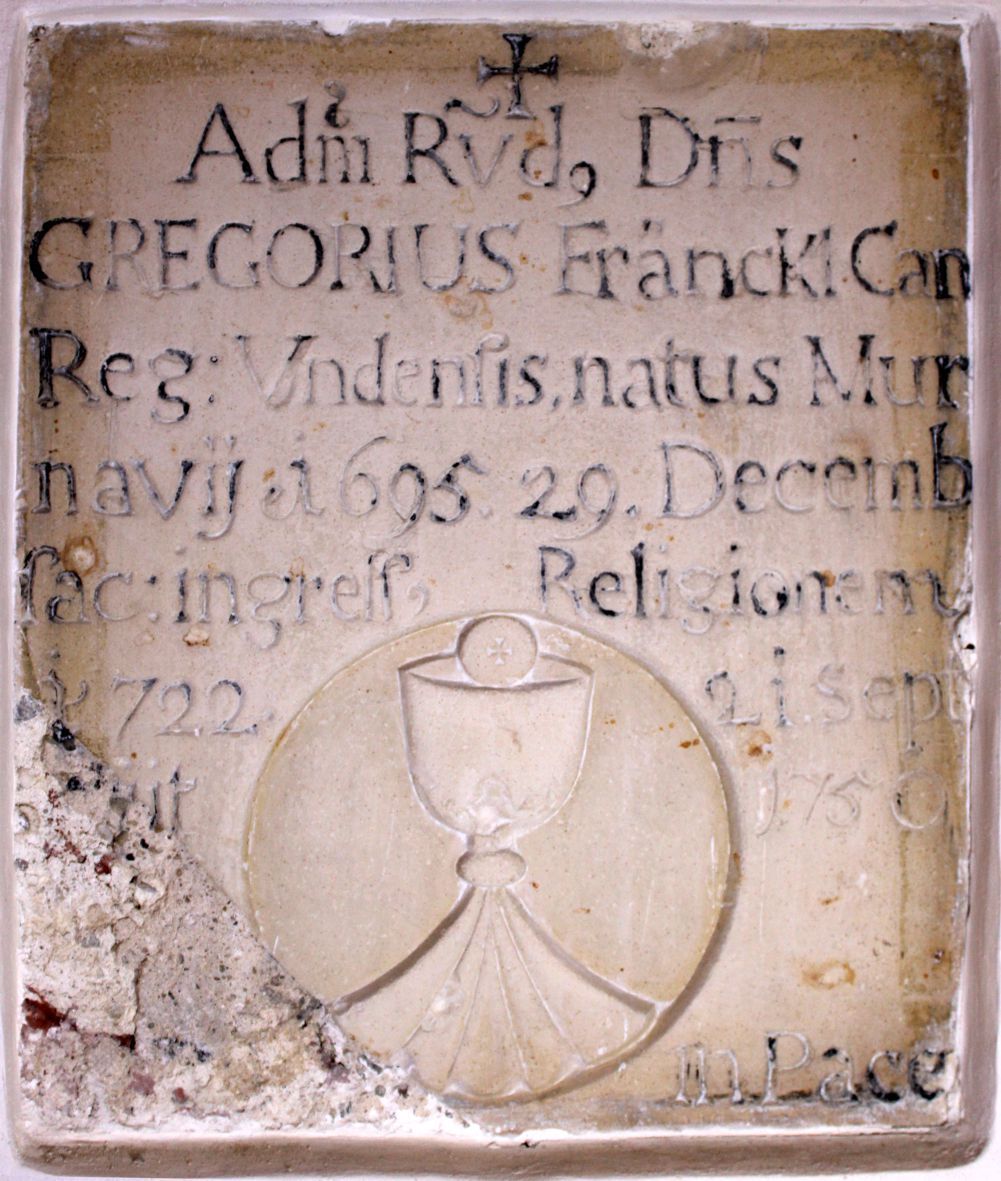 ✠
Adm̃ Rṽd, Dñs
GREGORIUS Fränckl Can
Reg: Vndenſis, natus Mur
navij 1695. 29. Decemb
ſac: ingreſſ, Religionem
1722. 21. Sept
1750
in Pace